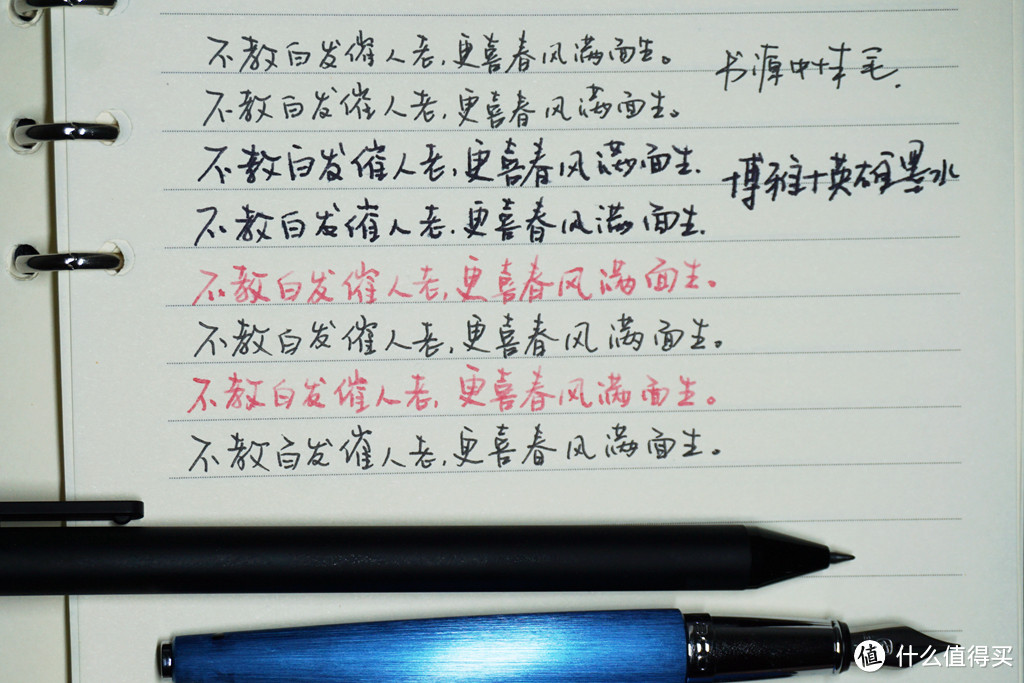 不教白发催人老,更喜春风满面生。
书源中性笔.
不教白发催人老,更喜春风满面生。
不教白发催人老,更喜春风满面生.
博雅+英雄墨水
不教白发催人老.更喜春风满面生.
不教白发催人老,更喜春风满面生。
不教白发催人老,更喜春风满面生。
不教白发催人老,更喜春风满面生。
不教白发催人老,更喜春风满面生。
值 什么值得买